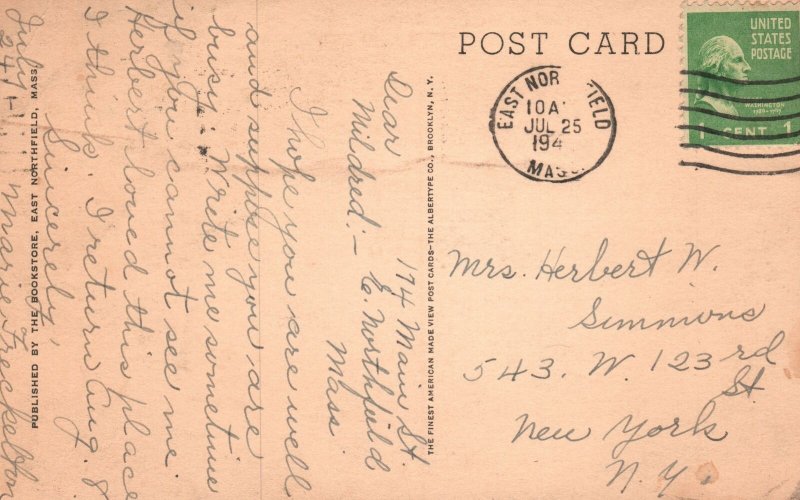 POST CARD
UNITED
STATES
POSTAGE
WASHINGTON
1 CENT 1
EAST NOR FIELD
10 A
JUL 25
194
MASS.
174 Main St.
E. Northfield
Mass.
Dear
Mildred:-
I hope you are well
and suppose you are
busy. Write me sometime
if you cannot see me.
Herbert loved this place
I think. I return Aug. 8
Sincerely,
Marie Freckelton
July
24-
Mrs. Herbert W.
Simmons
543. W. 123rd
St
New York
N.Y.
THE FINEST AMERICAN MADE VIEW POST CARDS—THE ALBERTYPE CO., BROOKLYN, N. Y.
PUBLISHED BY THE BOOKSTORE, EAST NORTHFIELD, MASS.